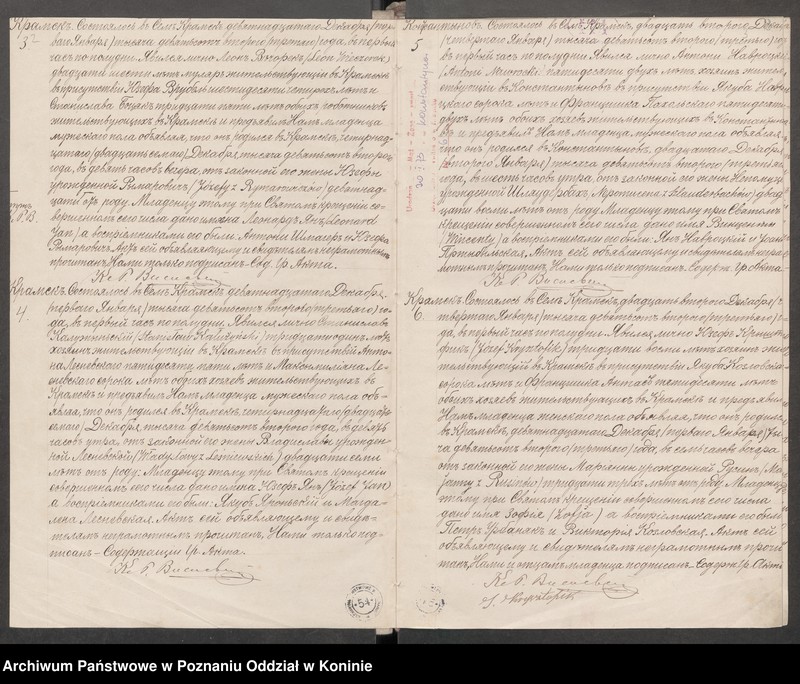 Крамск. Состоялось въ Селѣ Крамскѣ девятнадцатаго Декабря /пер
3
ваго Января/ тысяча девятьсотъ второго /третьяго/ года, въ первый
часъ по полудни. Явился лично Леонъ Вечорекъ, /Leon Wieczorek/
двадцати шести лѣтъ муляръ жительствующій въ Крамскѣ
въ присутствіи Юзефа Врубель шестидесяти четырехъ лѣтъ и
Станислава тридцати пяти лѣтъ обоихъ работниковъ
жительствующихъ въ Крамскѣ и предъявилъ Намъ младенца
мужескаго пола объявляя, что онъ родился въ Крамскѣ, четырнад-
цатаго /двадцать седьмаго/ Декабря тысяча девятьсотъ второго
года, въ девять часовъ вечера, отъ законной его жены Юзефы
урожденной Рыпарович /Józefy z Rypatowicz/ девятнад-
цати отъ роду. Младенцу этому при Святомъ крещеніи со-
вершенномъ сего числа дано имяна Леонардъ Янъ /Leonard
Jan/ а воспріемниками его были: Антони и Юзефа
Актъ сей объявляющему и свидѣтелямъ неграмотнымъ
прочитанъ Нами только подписанъ – Сод. Гр. Акта.
Кс. Р.
Крамск. Состоялось въ Селѣ Крамскѣ девятнадцатаго Декабря
4.
/перваго Января/ тысяча девятьсотъ второго /третьяго/ го-
да, въ первый часъ по полудни. Явился лично Станиславъ
Калужыньскій /Stanisław Kałużyński/ тридцати одинъ лѣтъ
хозяинъ жительствующій въ Крамскѣ въ присутствіи Анто-
на Лесневскаго пятидесяти пяти лѣтъ и Максимиліана Ле-
сневскаго сорока лѣтъ обоихъ хозяевъ жительствующихъ въ
Крамскѣ и предъявилъ Намъ младенца мужескаго пола объ-
являя, что онъ родился въ Крамскѣ, четырнадцатаго /двадцать
седьмаго/ Декабря, тысяча девятьсотъ второго года, въ девять
часовъ утра, отъ законной его жены Владиславы урожден-
ной Лесневской /Władysławy z Leśniewskich/ двадцати семи
лѣтъ отъ роду. Младенцу этому при Святомъ крещеніи
совершенномъ сего числа даны имяна Юзефъ Янъ /Józef Jan/
а воспріемниками его были: Якубъ и Магда-
лена Лесневская. Актъ сей объявляющему и свидѣ-
телямъ неграмотнымъ прочитанъ, Нами только под-
писанъ – Содержащим Гр. Акта.
Кс. Р.
54
Константиновъ. Состоялось въ Селѣ Крамскѣ двадцать второго Декаб
5
/четвертаго Января/ тысяча девятьсотъ второго /третьяго/ года,
въ первый часъ по полудни. Явился лично Антони Навроцкій
/Antoni Nawrocki/ пятидесяти двухъ лѣтъ, хозяинъ жител
ствующій въ Константиновѣ въ присутствіи Якуба Нав
роцкаго сорока лѣтъ и Францишка пятидесяти
двухъ лѣтъ обоихъ хозяевъ жительствующихъ въ Константи
вѣ и предъявилъ Намъ младенца мужескаго пола объявля
что онъ родился въ Константиновѣ, двадцатаго Декабря
/второго Января/ тысяча девятьсотъ второго /третьяго/
года, въ шесть часовъ утра, отъ законной его жены
урожденной двад
цати восьми лѣтъ отъ роду. Младенцу этому при Святомъ
крещеніи совершенномъ сего числа дано имя Винцентій
/Wincenty/ а воспріемниками его были: Янъ Навроцкій и
Актъ сей объявляющему и свидѣтелямъ негра
мотнымъ прочитанъ, Нами только подписанъ – Содерж. Гр. Акта.
Кс. Р.
Крамскъ. Состоялось въ Селѣ Крамскѣ двадцать второго Декабря /че
6.
твертаго Января/ тысяча девятьсотъ второго /третьяго/ го
да, въ первый часъ по полудни. Явился лично Юзефъ Криш
фикъ /Józef Krysztofik/ тридцати восьми лѣтъ хозяинъ жи
тельствующій въ Крамскѣ въ присутствіи Якуба Козловска
сорока лѣтъ и Францишка пятидесяти лѣтъ
обоихъ хозяевъ жительствующихъ въ Крамскѣ и предъявилъ
Намъ младенца женскаго пола объявляя, что онъ родился
въ Крамскѣ, девятнадцатаго Декабря /перваго Января/ ты
ча девятьсотъ второго /третьяго/ года, въ семь часовъ вечера
отъ законной его жены Марьянны урожденной
тридцати трехъ лѣтъ отъ роду. Младенцу
этому при Святомъ крещеніи совершенномъ сего числа
дано имя Зофія /Zofja/ а воспріемниками его были
Петръ Урбанякъ и Викторія Козловская. Актъ сей
объявляющему и свидѣтелямъ неграмотнымъ прочи
танъ, Нами и отцамъ младенца подписанъ – Содерж. Гр. Акта
Кс. Р.
J. Krysztofik
Archiwum Państwowe w Poznaniu Oddział w Koninie